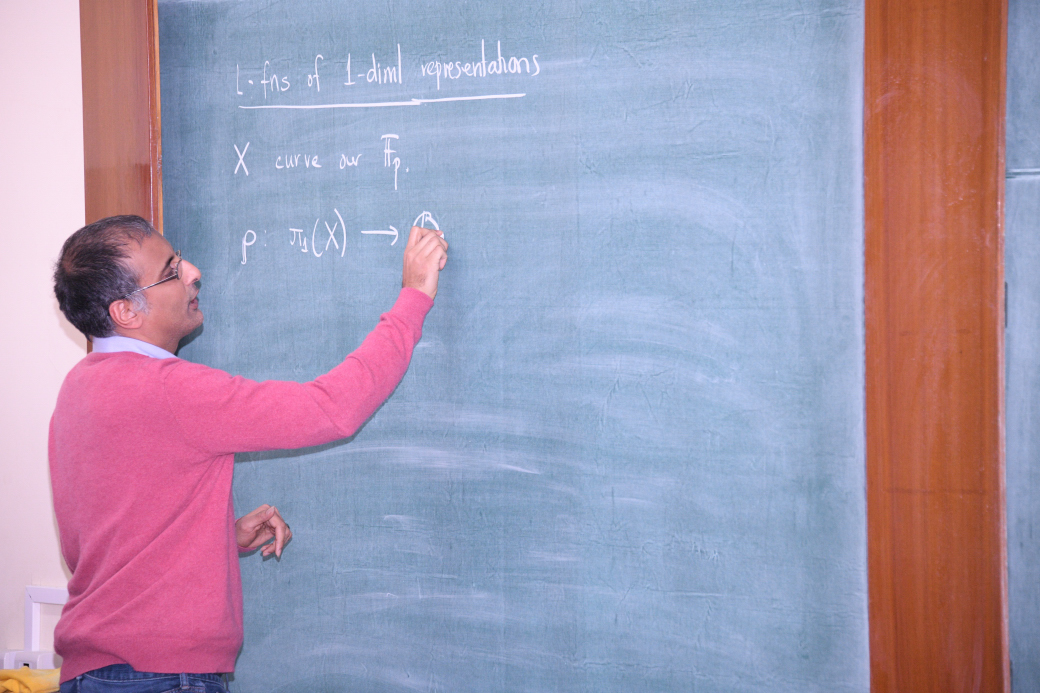 L-fns of 1-diml representations
X curve over 𝔽̅ₚ.
ρ: π₁(X) →